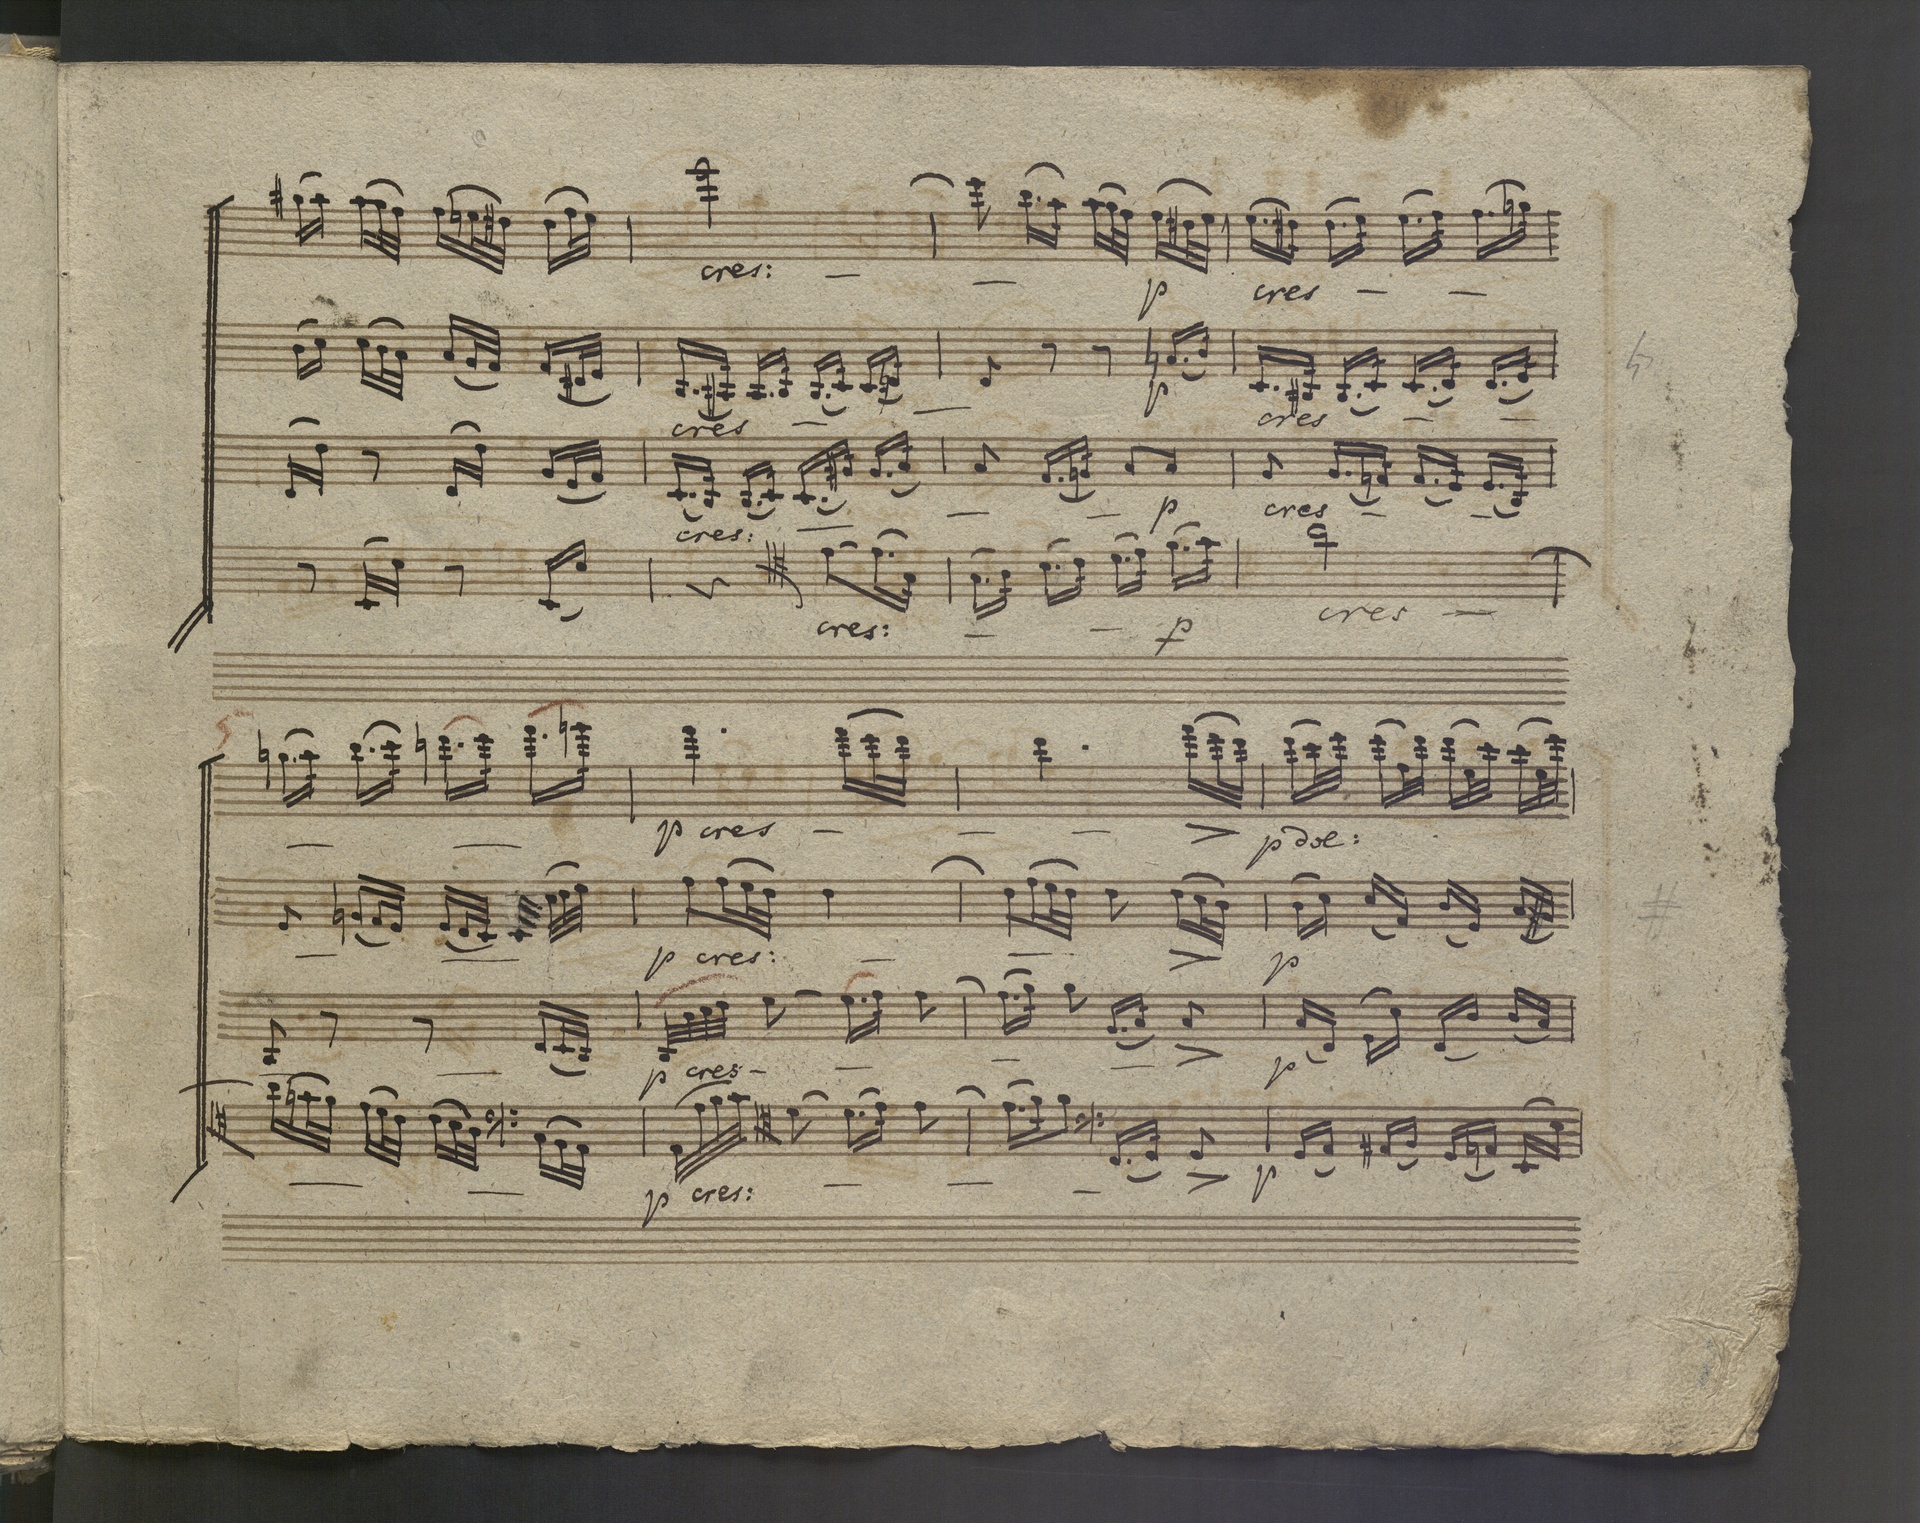 cres: —
— p cres — —
cres — — p cres — —
cres: — — — p cres — —
cres: — — p cres —
5
— — p cres — — — p dol:
— — p cres: — — p
— p cres - — — — p
— — p cres: — — — p